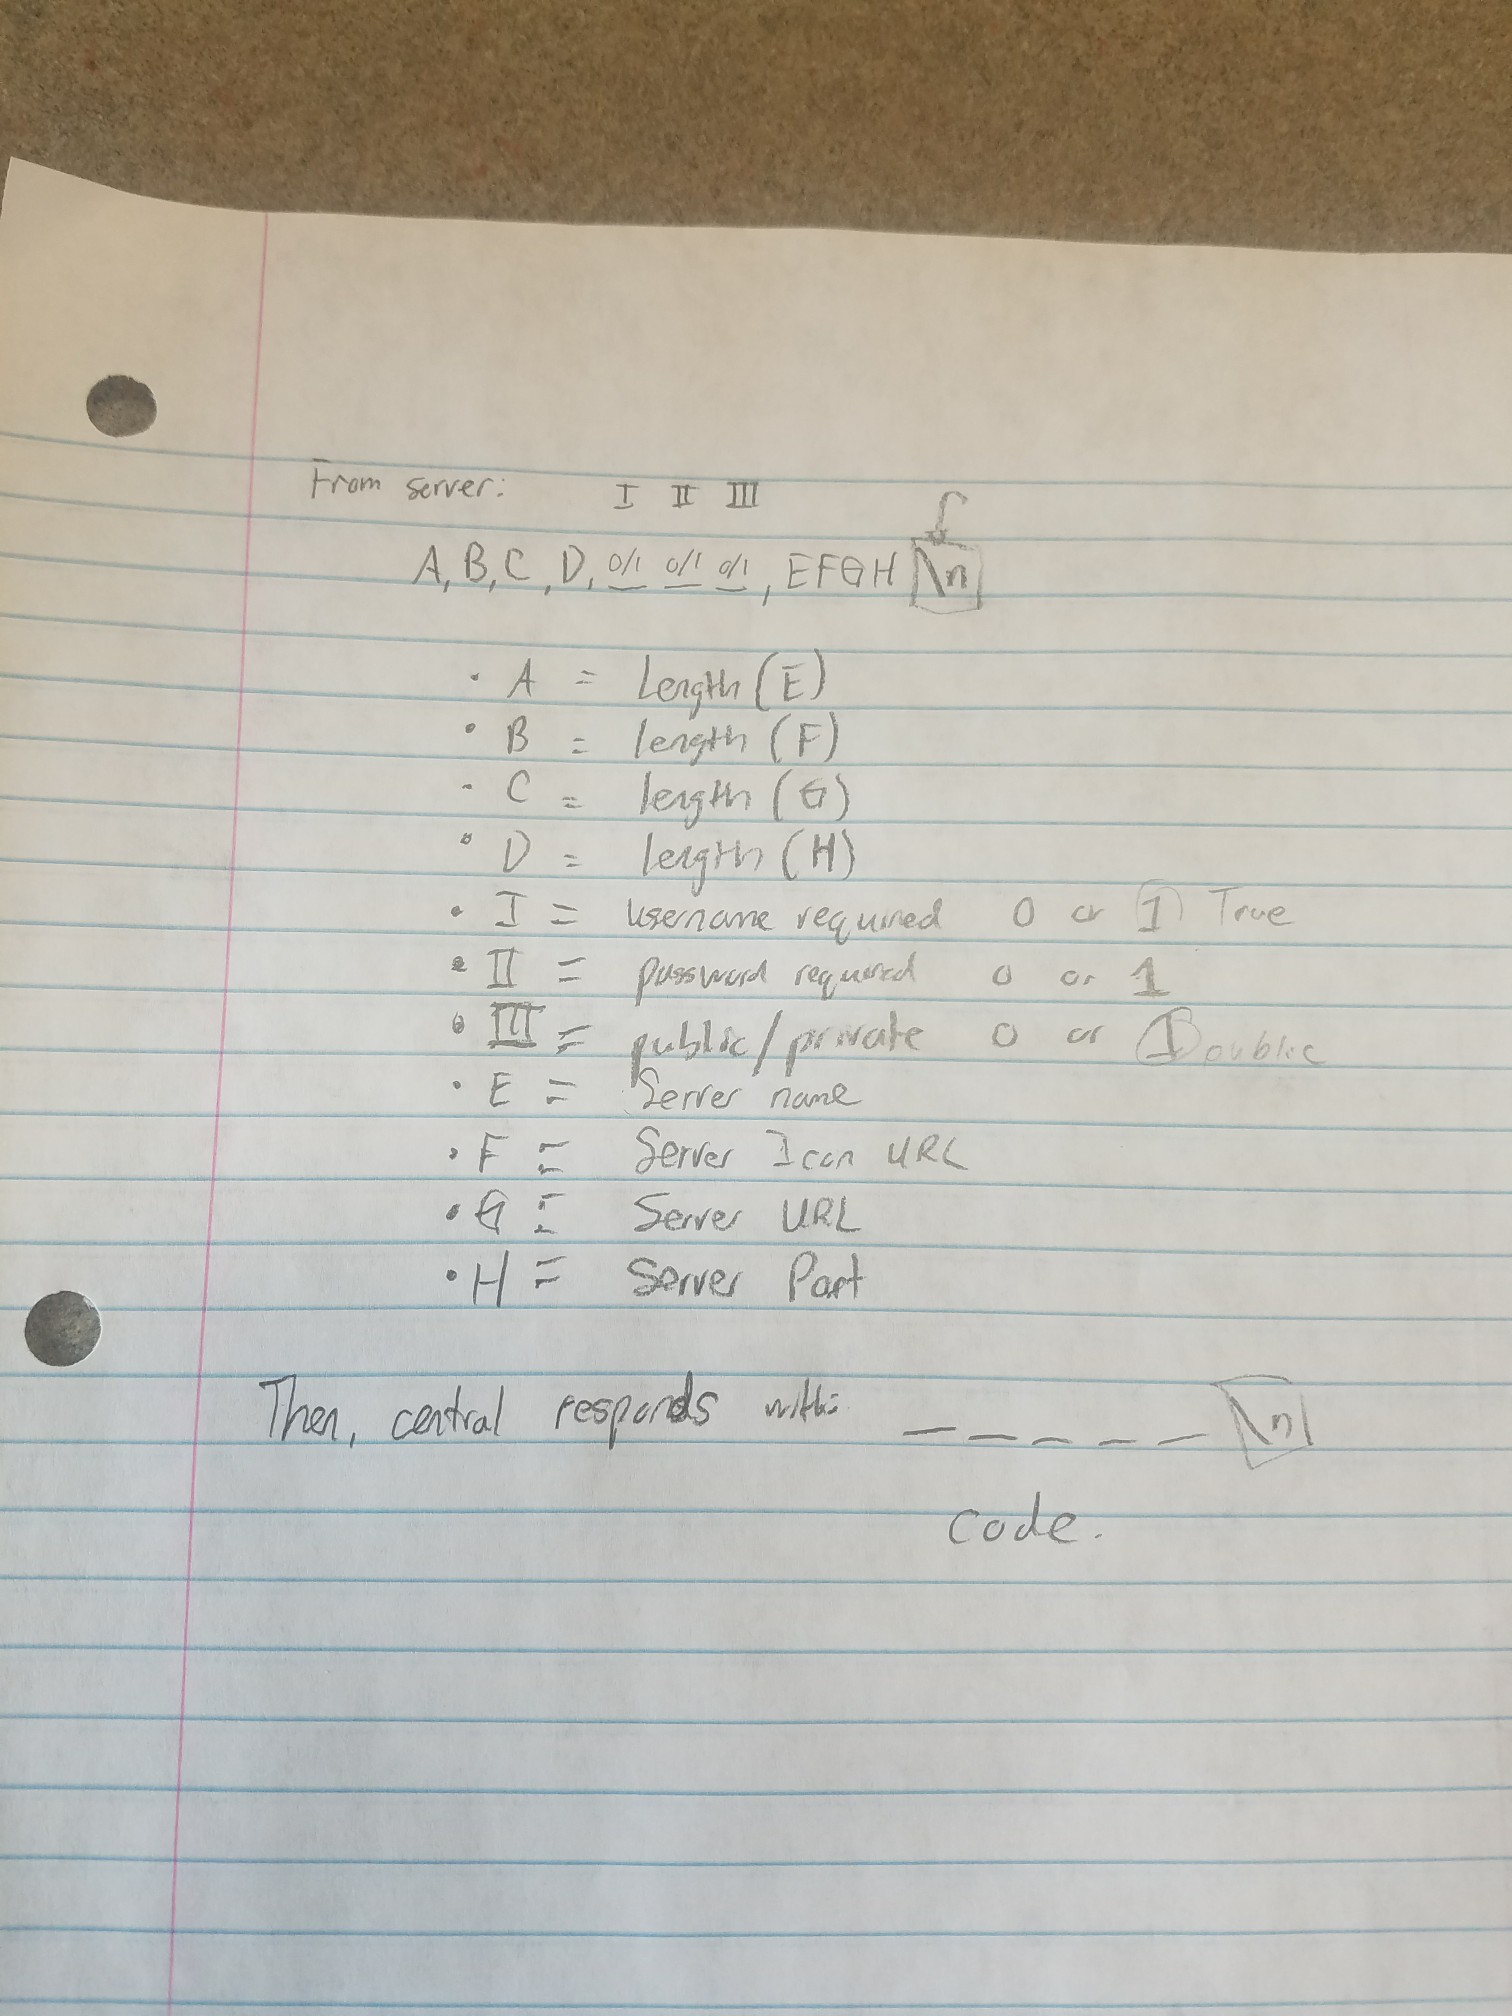 From server: I II III
A, B, C, D, 0/1 0/1 0/1, EFGH \n
• A = Length (E)
• B = length (F)
- C = length (G)
• D = length (H)
• I = username required 0 or 1 True
• II = password required 0 or 1
• III = public/private 0 or 1 public
• E = Server name
• F = Server Icon URL
• G = Server URL
• H = Server Port
Then, central responds with: _ _ _ _ _ \n
code.